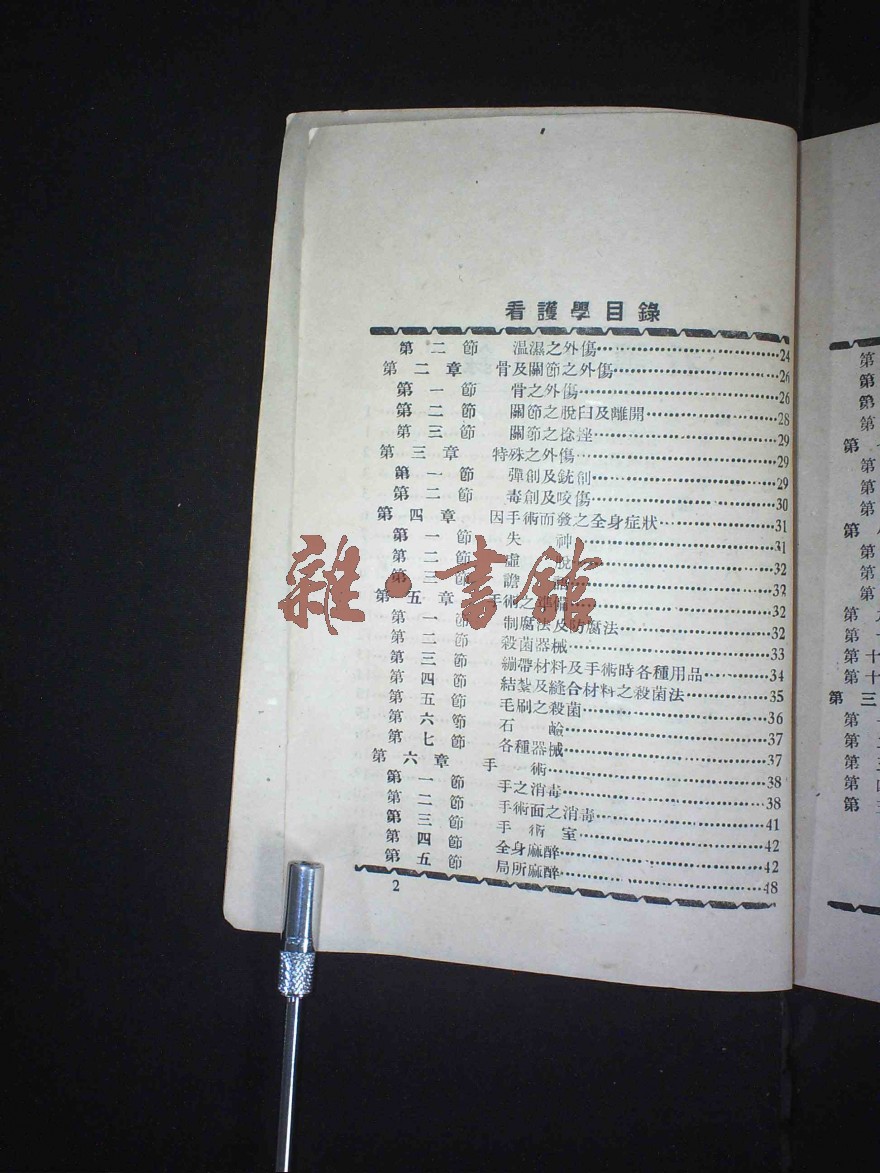 看護學目錄
第二節 温濕之外傷…………24
第二章 骨及關節之外傷…………26
第一節 骨之外傷…………26
第二節 關節之脫臼及離開…………28
第三節 關節之捻挫…………29
第三章 特殊之外傷…………29
第一節 彈創及銃創…………29
第二節 毒創及咬傷…………30
第四章 因手術而發之全身症狀…………31
第一節 失神…………31
第二節 虛脫…………32
第三節 譫…………32
第五章 手術之準備…………32
第一節 制腐法及防腐法…………32
第二節 殺菌器械…………33
第三節 繃帶材料及手術時各種用品…………34
第四節 結紮及縫合材料之殺菌法…………35
第五節 毛刷之殺菌…………36
第六節 石鹼…………37
第七節 各種器械…………37
第六章 手術…………38
第一節 手之消毒…………38
第二節 手術面之消毒…………41
第三節 手術室…………42
第四節 全身麻醉…………42
第五節 局所麻醉…………48
2
雜·書館
第
第
第
第
第
第
第
第
第
第
第
第
第
第
第十
第十
第三
第
第
第
第
第